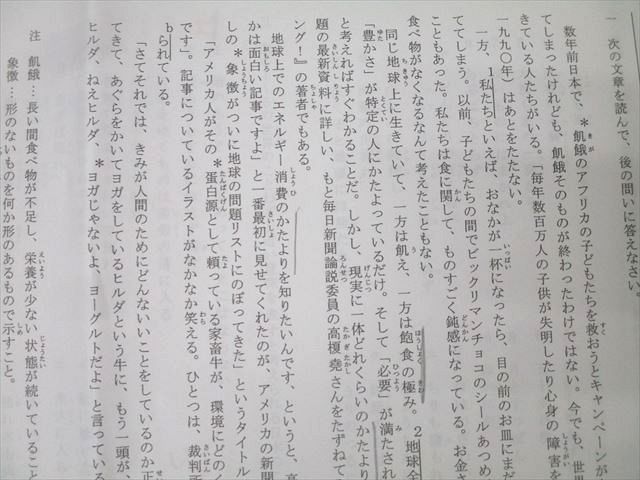 一　次の文章を読んで、後の問いに答えなさい。
数年前日本で、＊飢餓のアフリカの子どもたちを救おうとキャンペーンが
てしまったけれども、飢餓そのものが終わったわけではない。今でも、世
きている人たちがいる。「毎年数百万人の子供が失明したり心身の障害を
一九九〇年）はあとをたたない。
一方、1私たちといえば、おなかが一杯になったら、目の前のお皿にまだ
てしまう。以前、子どもたちの間でビックリマンチョコのシールあつめ
こともあった。私たちは食に関して、ものすごく鈍感になっている。お金さ
食べ物がなくなるなんて考えたこともない。
同じ地球上に生きていて、一方は飢え、一方は飽食の極み。2地球全
「豊かさ」が特定の人にかたよっているだけ。そして「必要」が満たされ
と考えればすぐわかることだ。しかし、現実に一体どれくらいのかたより
題の最新資料に詳しい、もと毎日新聞論説委員の高榎堯さんをたずねて
ング！』の著者でもある。
地球上でのエネルギー消費のかたよりを知りたいんです、というと、高
かは面白い記事ですよ」と一番最初に見せてくれたのが、アメリカの新聞
しの＊象徴がついに地球の問題リストにのぼってきた」というタイトル
「アメリカ人がその＊蛋白源として頼っている家畜牛が、環境にどのく
です」。記事についているイラストがなかなか笑える。ひとつは、裁判所
bられている。
「さてそれでは、きみが人間のためにどんないいことをしているのか正
てきて、あぐらをかいてヨガをしているヒルダという牛に、もう一頭が、
ヒルダ、ねえヒルダ、＊ヨガじゃないよ、ヨーグルトだよ」と言っている
注　飢餓…長い間食べ物が不足し、栄養が少ない状態が続いていること
象徴…形のないものを何か形のあるもので示すこと。